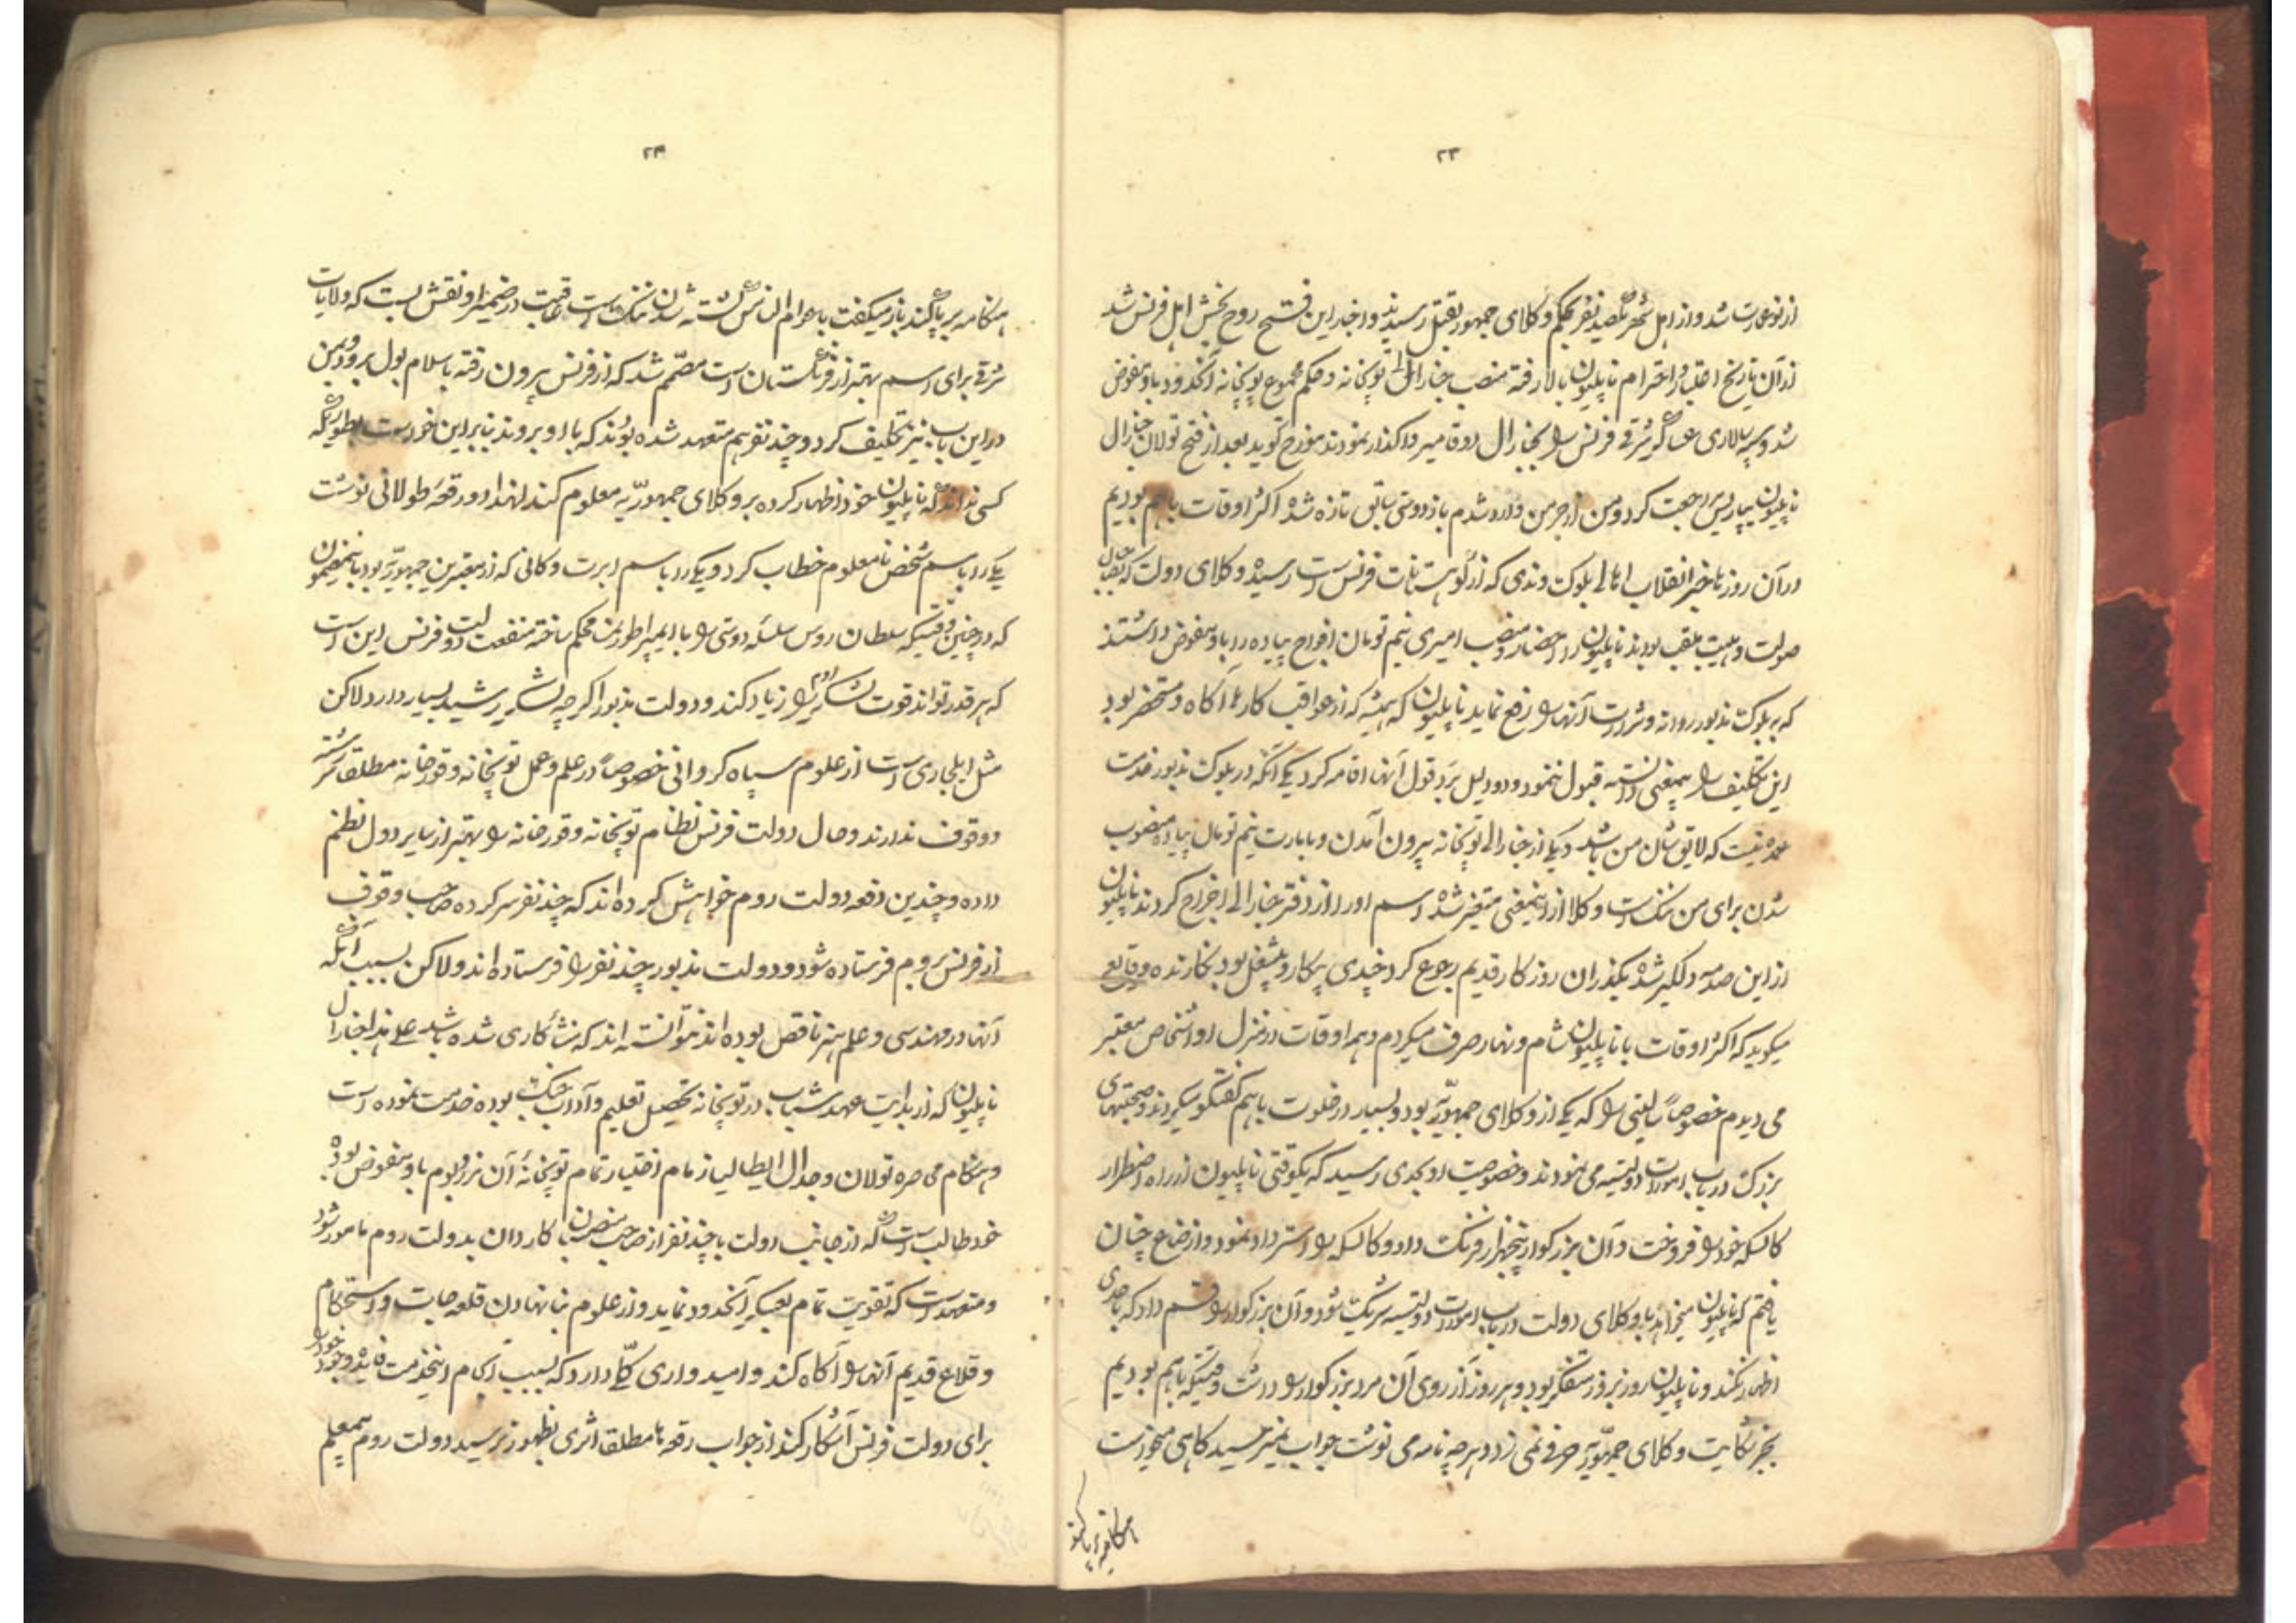 ۲۳
از نو عمارت شد و از اهل شهر یکصد نفر بحکم وکلای جمهور بقتل رسیدند و اخبار این فتح روح بخش اهل فرنس شد
از آن تاریخ اعتبار و احترام ناپلیون بالا رفته منصب جنارالی توپخانه و حکم مجموع توپخانه آنحدود باو مفوض
شد و سپه سالاری عساکر شرقی فرنس را بجنارال دوقامیر واگذار نمودند مورخ گوید بعد از فتح تولان جنارال
ناپلیون بپاریس مراجعت کرد و من از جرمن وارد شدم باز دوستی سابق تازه شد اکثر اوقات باهم بودیم
در آن روزها خبر انقلاب اهالی بلوک وندی که از کوهستانات فرنس است رسید و وکلای دولت که
صولت و هیبت ملقب بودند ناپلیون را احضار و منصب امیری نیم تومان افواج پیاده را باو مفوض داشتند
که بر بلوک مذبور روانه و شرارت آنها را رفع نماید ناپلیون که همیشه از عواقب کارها آگاه و مستحضر بود
این تکلیف را بیمعنی دانسته قبول ننمود و دو دلیل برد قول آنها اقامه کرد یکی آنکه در بلوک مذبور خدمت
عمده نیست که لایق شان من باشد دیگر از جنارالی توپخانه بیرون آمدن و بامارت نیم تومان پیاده منصوب
شدن برای من ننگ است وکلا از اینمعنی متغیر شده اسم او را از دفتر جنارالی اخراج کردند ناپلیون
از این صدمه دلگیر شده بگذران روزکار قدیم رجوع کرد چندی بیکار و بیشغل بود نگارنده وقایع
میگوید که اکثر اوقات با ناپلیون شام و نهار صرف میکردم و هم اوقات در منزل او اشخاص معتبر
می دیدم خصوصاً را که یکی از وکلای جمهوریه بود و بسیار در خلوت باهم گفتگو میکردند و صحبتهای
بزرگ در باب امورات دولتیه می نمودند و خصوصیت او بحدی رسید که یکوقتی ناپلیون از راه اضطرار
کالسکه خود را فروخت و آن بزرگوار پنجهزار فرنک داد و کالسکه را استرداد نمود و از اوضاع چنان
یافتم که ناپلیون میخواهد با وکلای دولت در باب امورات دولتیه شریک شود و آن بزرگوار را قسم داد که باحدی
اظهار نکند و ناپلیون روز بروز متفکر بود و هر روز آرزوی آن مرد بزرگوار را داشت وقتیکه باهم بودیم
بجز شکایت وکلای جمهوریه حرفی نمی زد و هرچه نامه می نوشت جواب نمیرسید کاهی میخواست
هنگامه بر پا کند
۲۴
هنگامه بر پا کند باز میکفت با عوام الناس کشته شدن ننک است عاقبت در ضمیر او نقش بست که ولایات
شرقی برای اسم بهتر از فرنگستان است مصمم شد که از فرنس بیرون رفته باسلام بول برود و بمن
در این باب نیز تکلیف کرد و چند نفر هم متعهد شده بودند که با او بروند بنابراین خواست بطوریکه
کسی نداند که ناپلیون خود اظهار کرده بر وکلای جمهوریه معلوم کند لهذا دو رقعه طولانی نوشت
یکی را باسم شخص نامعلوم خطاب کرد و یکی را باسم ابرت وکانی که از معتبرین جمهوریه بود باینمضمون
که در چنین وقتیکه سلطان روس سلسله دوستی را با ایمپراطور نمسه محکم ساخته منفعت دولت فرنس این است
که هر قدر تواند قوت لشکر روم را زیاد کند و دولت مذبور اگرچه لشکر رشید بسیار دارد لاکن
مثل ایلجاری است از علوم سپاه کردانی خصوصاً در علم و عمل توپخانه و قورخانه مطلقا سررشته
و وقوف ندارند و حال دولت فرنس نظام توپخانه و قورخانه را بهتر از سایر دول نظم
داده و چندین دفعه دولت روم خواهش کرده اند که چند نفر سرکرده صاحب وقوف
از فرنس بروم فرستاده شود و دولت مذبور چند نفر را فرستاده اند ولاکن بسبب آنکه
آنها در مهندسی و علم هنر ناقص بوده اند نتوانسته اند که منشأ کاری شده باشد علی هذا جنارال
ناپلیون که از بدایت عهد شباب در توپخانه تحصیل تعلیم و آداب جنک بوده خدمت نموده است
و هنگام محاصره تولان و جدال ایطالیا زمام اختیار تمام توپخانه آن مرز و بوم باو مفوض بوده
خود طالب است که از جانب دولت با چند نفر از صاحب منصبان کاردان بدولت روم مامور شود
و متعهد است که تقویت تمام بعسکر آنحدود نماید و از علوم بنا نهادن قلعه جات و استحکام
و قلاع قدیم آنها را آگاه کند و امیدواری کلی دارد که بسبب انجام اینخدمت فایده وجود خود را
برای دولت فرنس آشکار کند از جواب رقعه ها مطلقا اثری بظهور نرسید دولت روم بمعلم